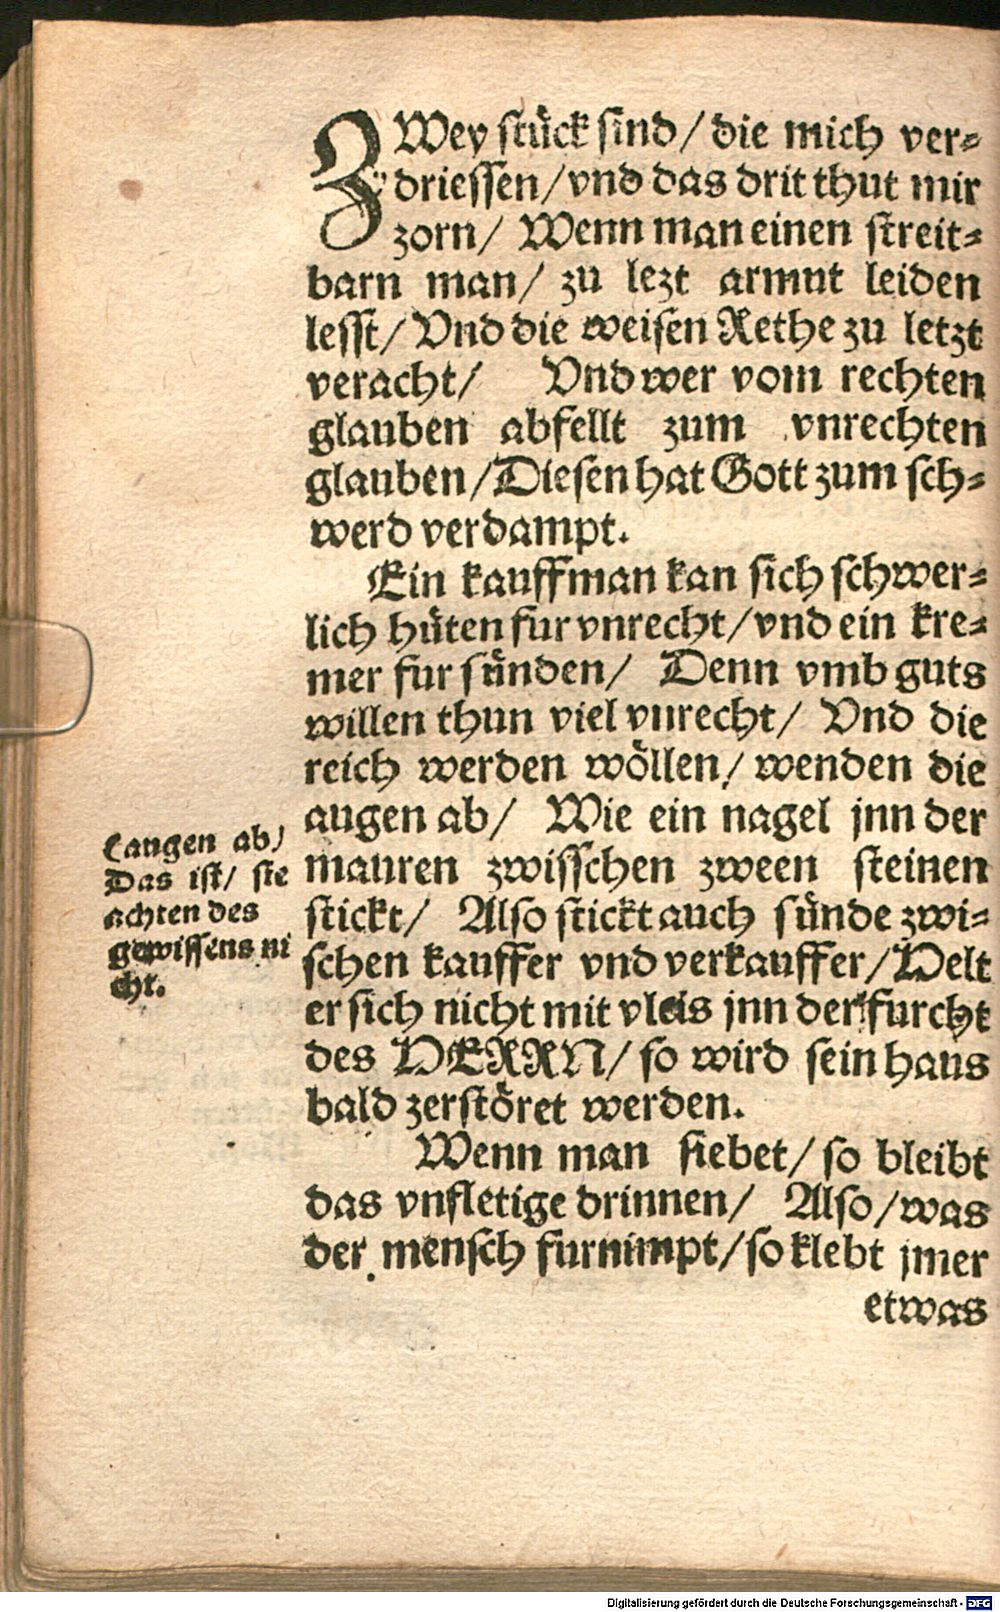 ZWey stück sind/ die mich ver-
driessen/ vnd das drit thut mir
zorn/ Wenn man einen streit-
barn man/ zu lezt armut leiden
lesst/ Vnd die weisen Rethe zu letzt
veracht/ Vnd wer vom rechten
glauben abfellt zum vnrechten
glauben/ Diesen hat Gott zum sch-
werd verdampt.
Ein kauffman kan sich schwer-
lich hüten fur vnrecht/ vnd ein kre-
mer fur sünden/ Denn vmb guts
willen thun viel vnrecht/ Vnd die
reich werden wöllen/ wenden die
augen ab/ Wie ein nagel jnn der
mauren zwisschen zween steinen
stickt/ Also stickt auch sünde zwi-
schen kauffer vnd verkauffer/ Helt
er sich nicht mit vleis jnn der furcht
des HERRN/ so wird sein haus
bald zerstöret werden.
Wenn man siebet/ so bleibt
das vnfletige drinnen/ Also/ was
der mensch furnimpt/ so klebt jmer
etwas
(augen ab/
Das ist/ sie
achten des
gewissens ni
cht.
Digitalisierung gefördert durch die Deutsche Forschungsgemeinschaft - DFG